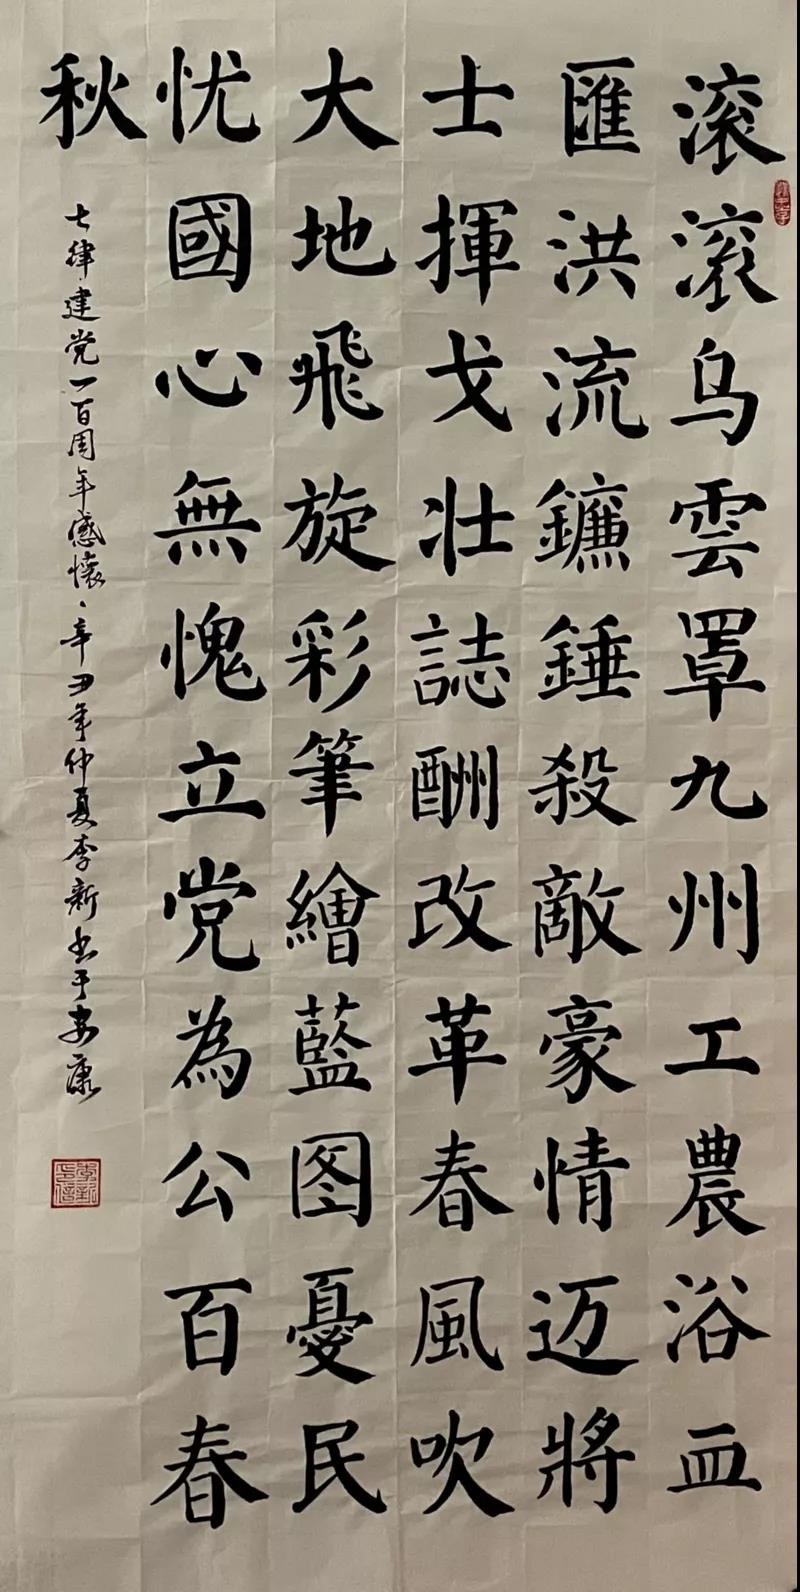 滚滚乌雲罩九州工農浴血
匯洪流鐮錘殺敵豪情迈將
士揮戈壮誌酬改革春風吹
大地飛旋彩筆繪藍图憂民
忧國心無愧立党為公百春
秋
七律·建党一百周年感懷、辛丑年仲夏李新书于安康
李新印信